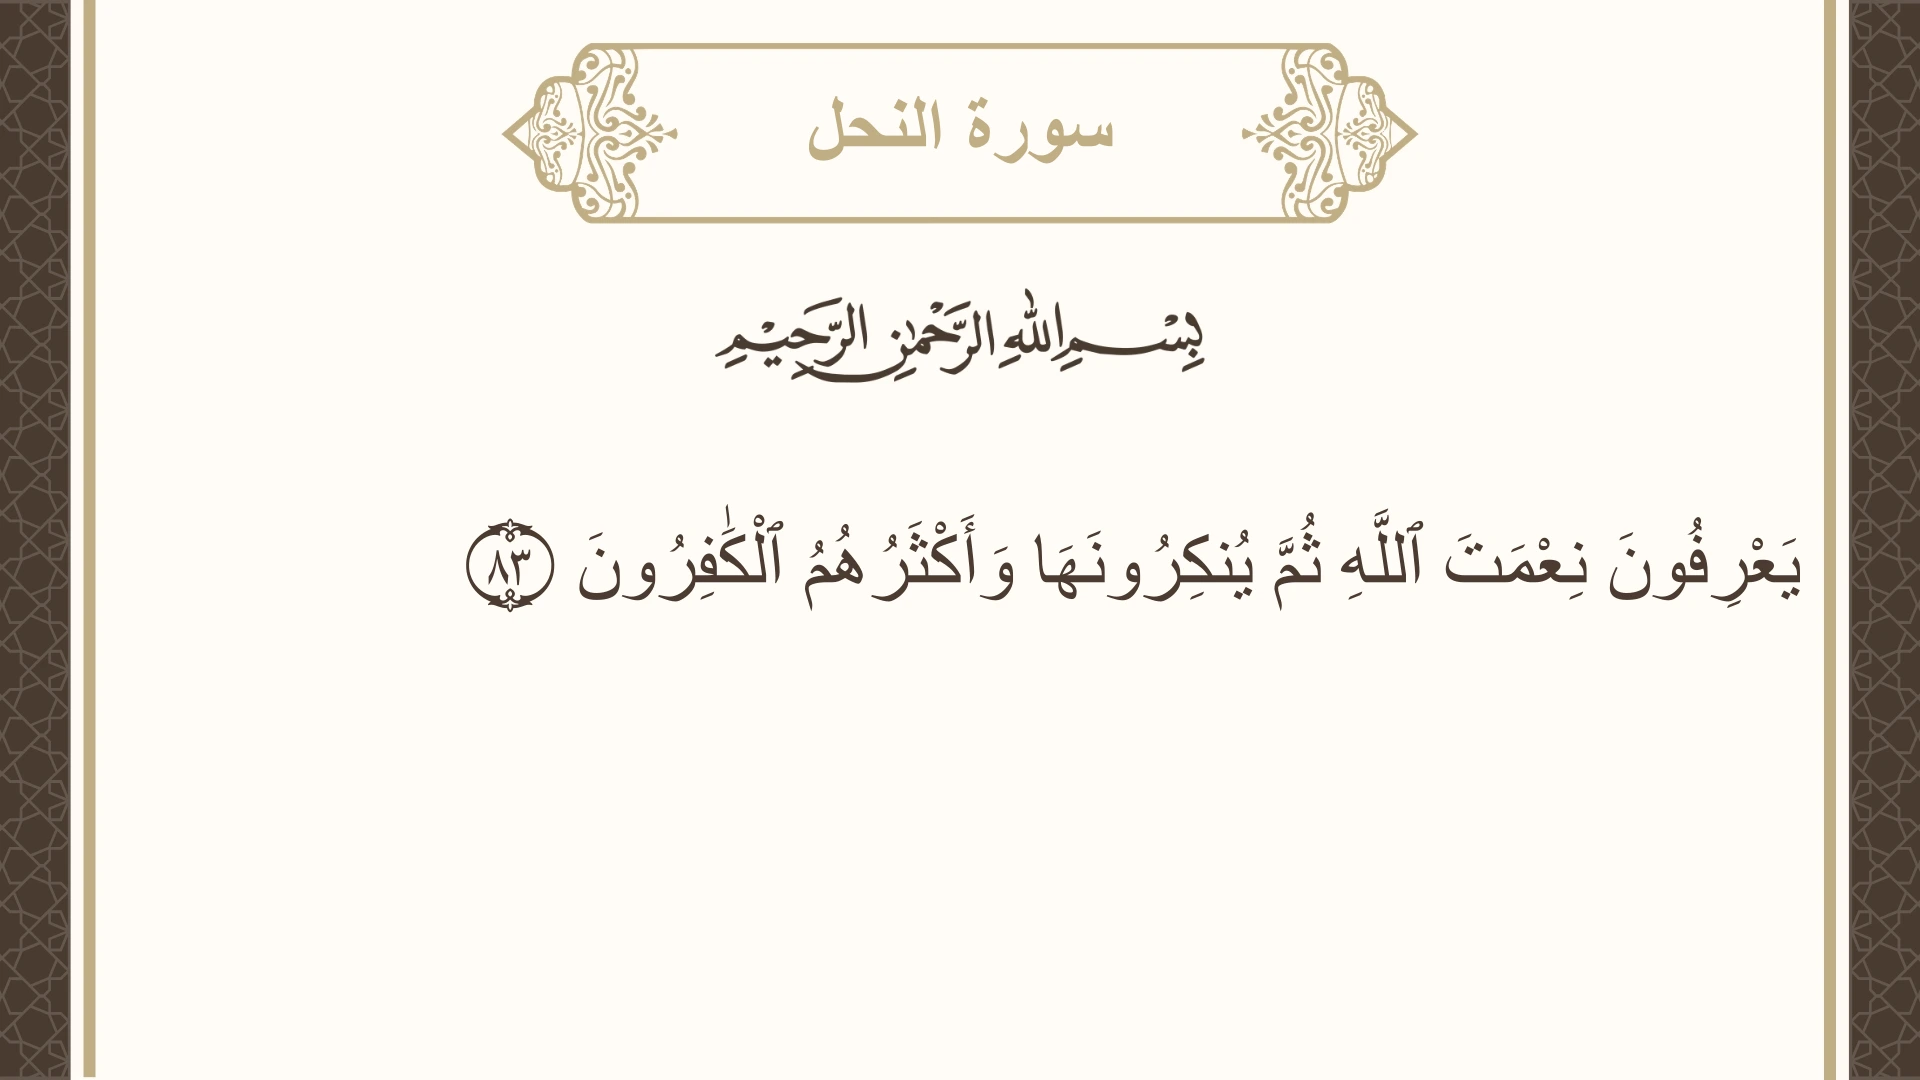 سورة النحل
بِسْمِ اللهِ الرَّحْمٰنِ الرَّحِيْمِ
يَعْرِفُونَ نِعْمَتَ ٱللَّهِ ثُمَّ يُنكِرُونَهَا وَأَكْثَرُهُمُ ٱلْكَٰفِرُونَ ٨٣